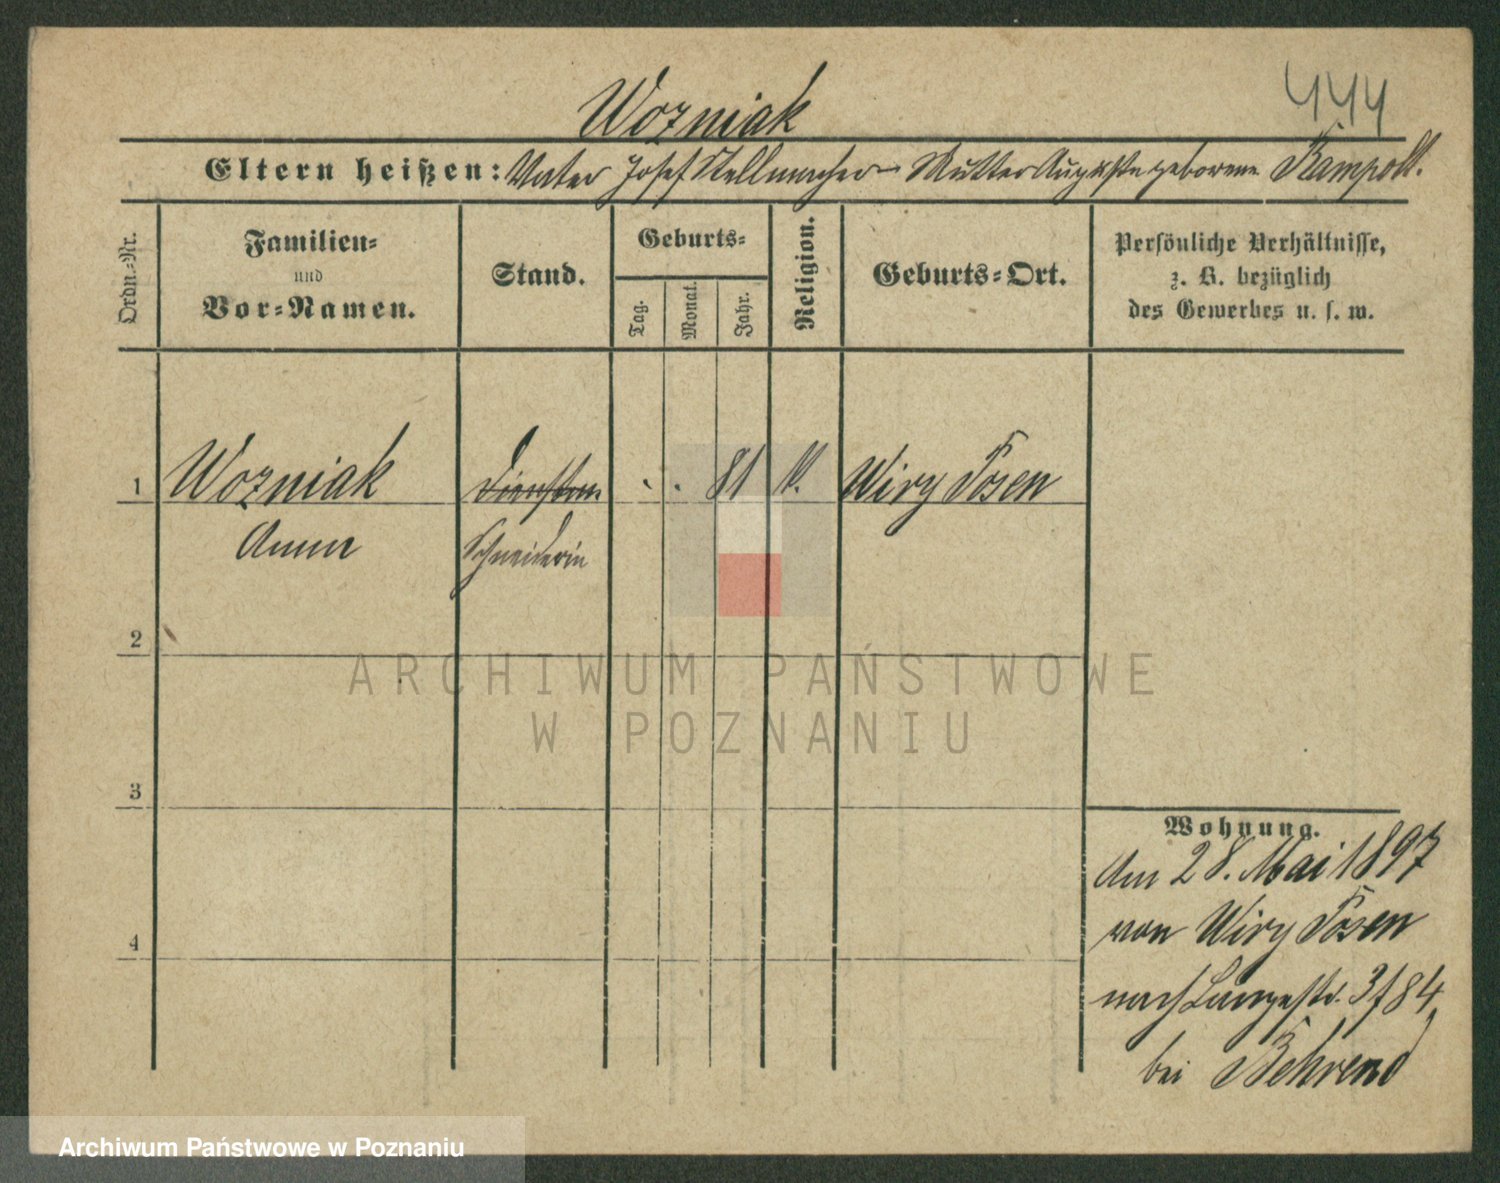 444
Wozniak
Eltern heißen: Vater Josef Stellmacher Mutter Auguste geborene
Ordn.-Nr.
Familien-
und
Vor-Namen.
Stand.
Geburts-
Tag.
Monat.
Jahr.
Religion.
Geburts-Ort.
Persönliche Verhältnisse,
z. B. bezüglich
des Gewerbes u. s. w.
1 Wozniak 81 k. Wiry Posen
Anna Schneiderin
2
3
4
Wohnung.
Am 28. Mai 1897
von Wiry Posen
nach Langestr. 3/84
bei Behrend
ARCHIWUM PAŃSTWOWE
W POZNANIU
Archiwum Państwowe w Poznaniu